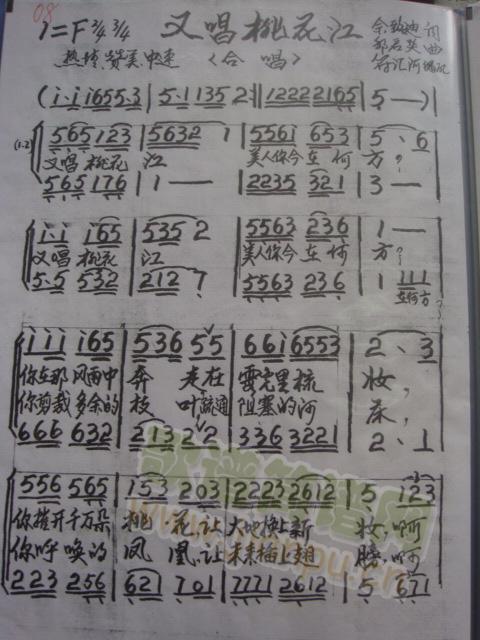 08
1=F 2/4 3/4 又唱桃花江
热情、赞美 中速 〈合唱〉
(i·i i655·3 | 5·1 135 2·|| 12222165 | 5 — )|
(1.2) 565 123 | 5632 1 | 556i 653 | 5 、6
又唱 桃花 江 美人你今在何方?
565 176 | 1 — | 2235 321 | 3 —
i·i i65 | 535 2 | 5563 236 | 1 —
又唱 桃花 江 美人你今在何 方?
5·5 532 | 212 7 | 5563 236 | 1 111
在何方?
iii i65 | 536 55 | 66i6553 | 2 、3
你在那风雨中 奔 走在 雪克里梳 妆,
你剪裁多余的 枝 叶疏通 阻塞的河 床,
666 632 | 213 22 | 3363221 | 2 、1
556 565 | 153 203 | 22232612 | 5 123
你摧开千万朵 桃 花,让 大地换上新 妆,啊
你呼唤的 凤 凰,让 未来插上翅 膀,啊
223 256 | 621 701 | 77712612 | 5 671